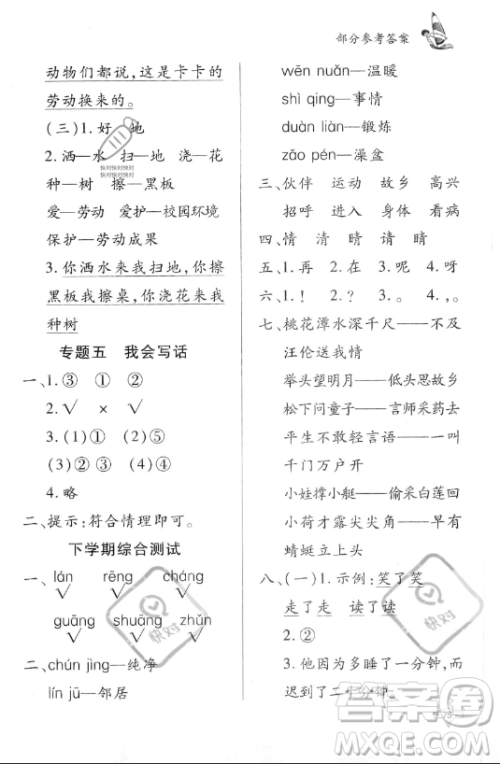 部分参考答案
动物们都说,这是卡卡的
劳动换来的。
(三)1.好 她
2.洒—水 扫—地 浇—花
种—树 擦—黑板
爱—劳动 爱护—校园环境
保护—劳动成果
3.你洒水来我扫地,你擦
黑板我擦桌,你浇花来我
种树
专题五 我会写话
一、1.③ ① ②
2.√ × √
3.(1)① (2)⑤
(3)② (4)④
4.略
二、提示:符合情理即可。
下学期综合测试
一、lán rēng cháng
√ √ √
guāng shuāng zhǔn
√ √ √
二、chún jìng—纯净
lín jū—邻居
wēn nuǎn—温暖
shì qing—事情
duàn liàn—锻炼
zǎo pén—澡盆
三、伙伴 运动 故乡 高兴
招呼 进入 身体 看病
四、情 清 晴 请 睛
五、1.再 2.在 3.呢 4.呀
六、1.! 2.? 3.。 4.,。
七、桃花潭水深千尺——不及
汪伦送我情
举头望明月——低头思故乡
松下问童子——言师采药去
平生不敢轻言语——一叫
千门万户开
小娃撑小艇——偷采白莲回
小荷才露尖尖角——早有
蜻蜓立上头
八、(一)1.示例:笑了笑
走了走 读了读
2.②
3.他因为多睡了一分钟,而
迟到了二十分钟。
快对
快对
答案圈